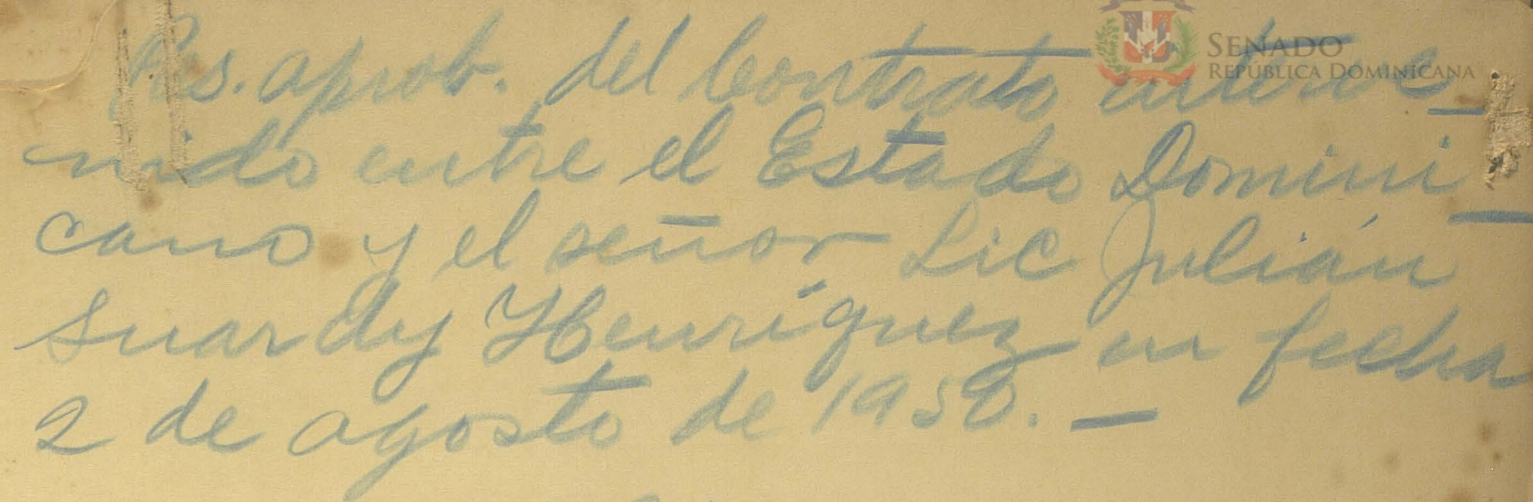 SENADO
REPÚBLICA DOMINICANA
Res. aprob. del Contrato interve_
nido entre el Estado Domini_
cano y el señor Lic Julián
Suardy Henríquez en fecha
2 de agosto de 1950. —